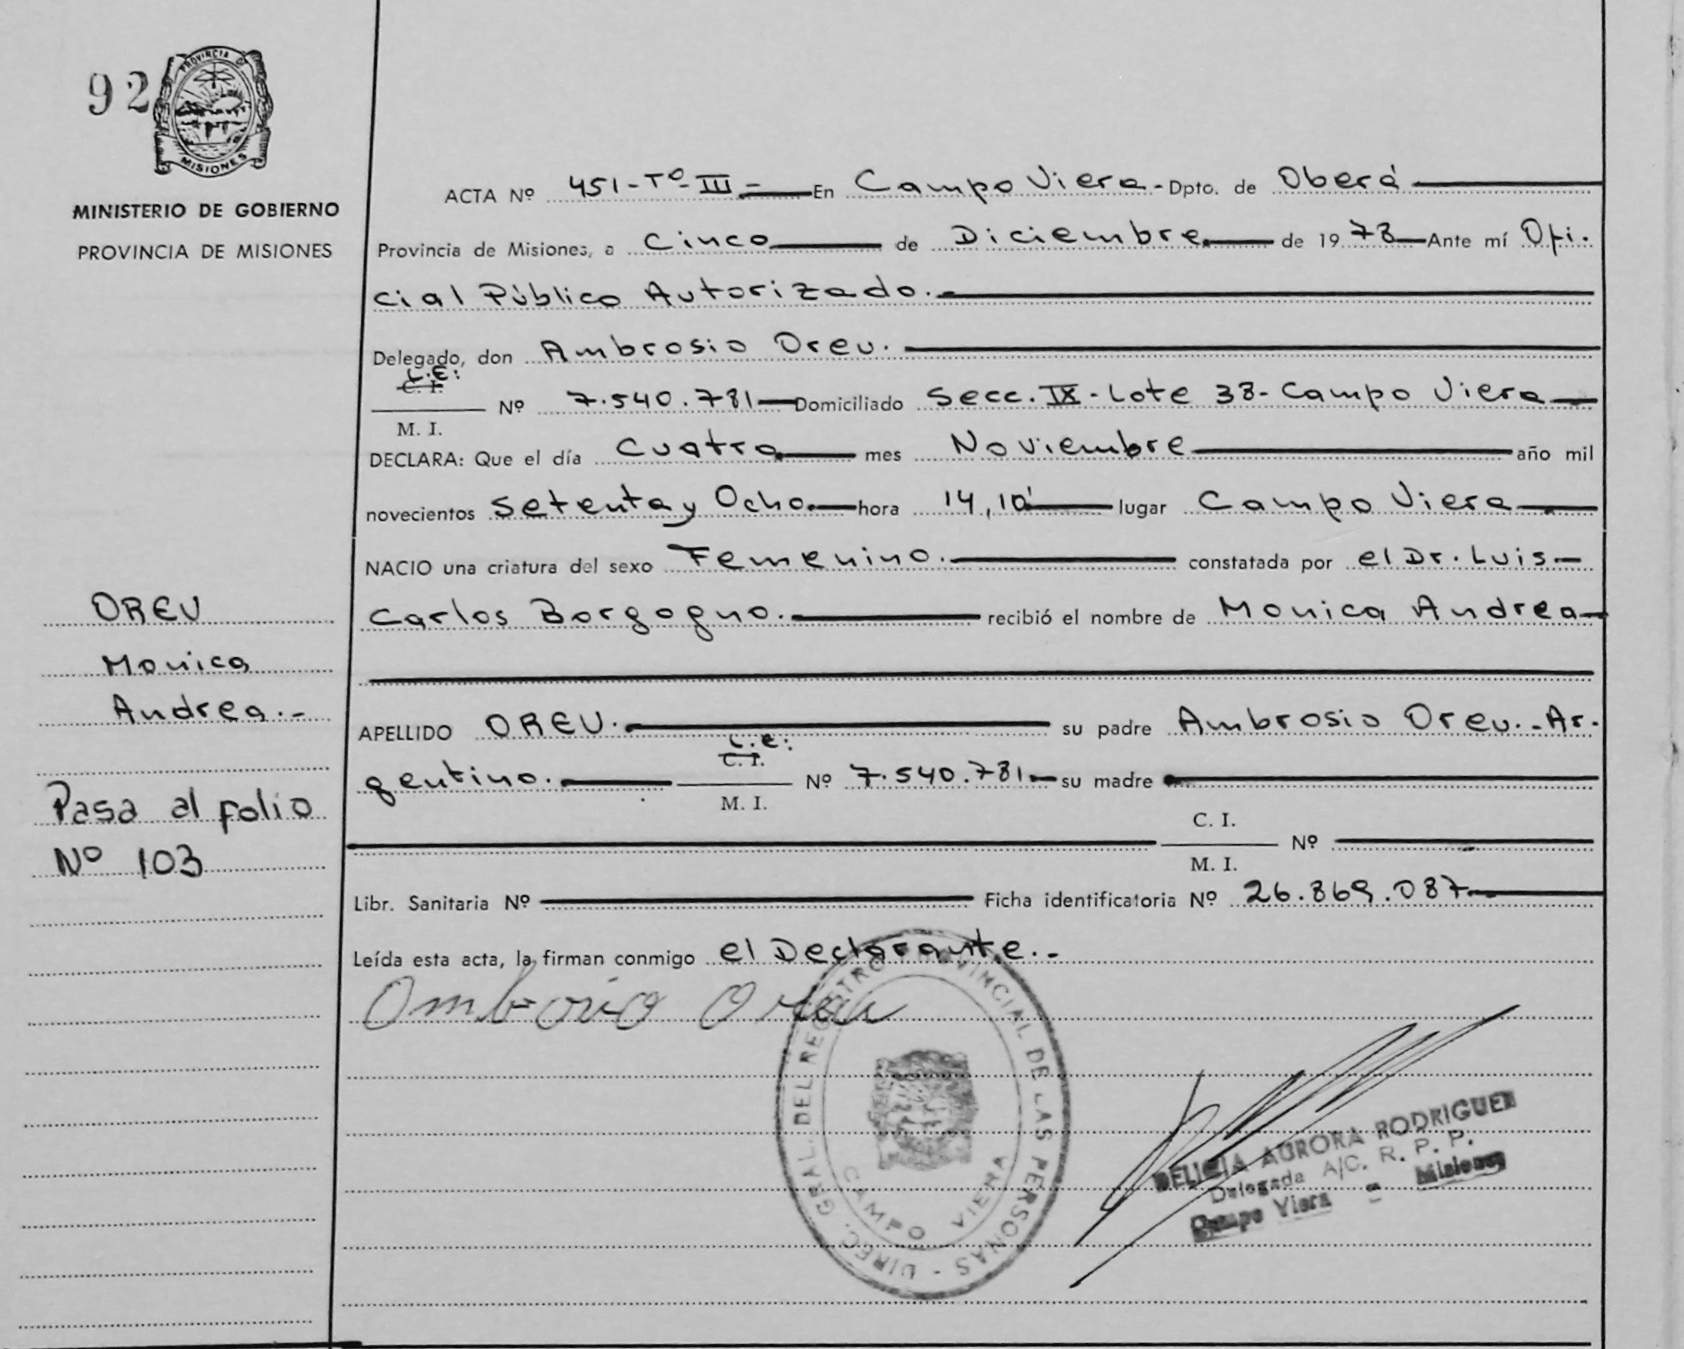 92
PROVINCIA DE
MISIONES
MINISTERIO DE GOBIERNO
PROVINCIA DE MISIONES
ACTA Nº 451-Tº-III- En Campo Viera.- Dpto. de Oberá
Provincia de Misiones, a Cinco de Diciembre de 1978 Ante mí Ofi.
cial Público Autorizado.-
Delegado, don Ambrosio Oreu.
L.E:
C. I.
M. I.
Nº 7.540.781 Domiciliado Secc. IX-Lote 38-Campo Viera
DECLARA: Que el día Cuatro mes Noviembre año mil
novecientos Setenta y Ocho. hora 14,10' lugar Campo Viera
NACIO una criatura del sexo Femenino. constatada por el Dr. Luis
Carlos Borgogno. recibió el nombre de Monica Andrea
APELLIDO OREU. su padre Ambrosio Oreu.-Ar.
gentino.
L.E:
C. I.
M. I.
Nº 7.540.781 su madre
C. I.
M. I.
Nº
Libr. Sanitaria Nº Ficha identificatoria Nº 26.869.087
Leída esta acta, la firman conmigo el Declarante.-
Ombrosio Oreu
OREU
Monica
Andrea.-
Pasa al folio
Nº 103
DIREC. GRAL. DEL REGISTRO PROVINCIAL DE LAS PERSONAS -
CAMPO VIERA
DELICIA AURORA RODRIGUEZ
Delegada A/C. R. P. P.
Campo Viera - Misiones